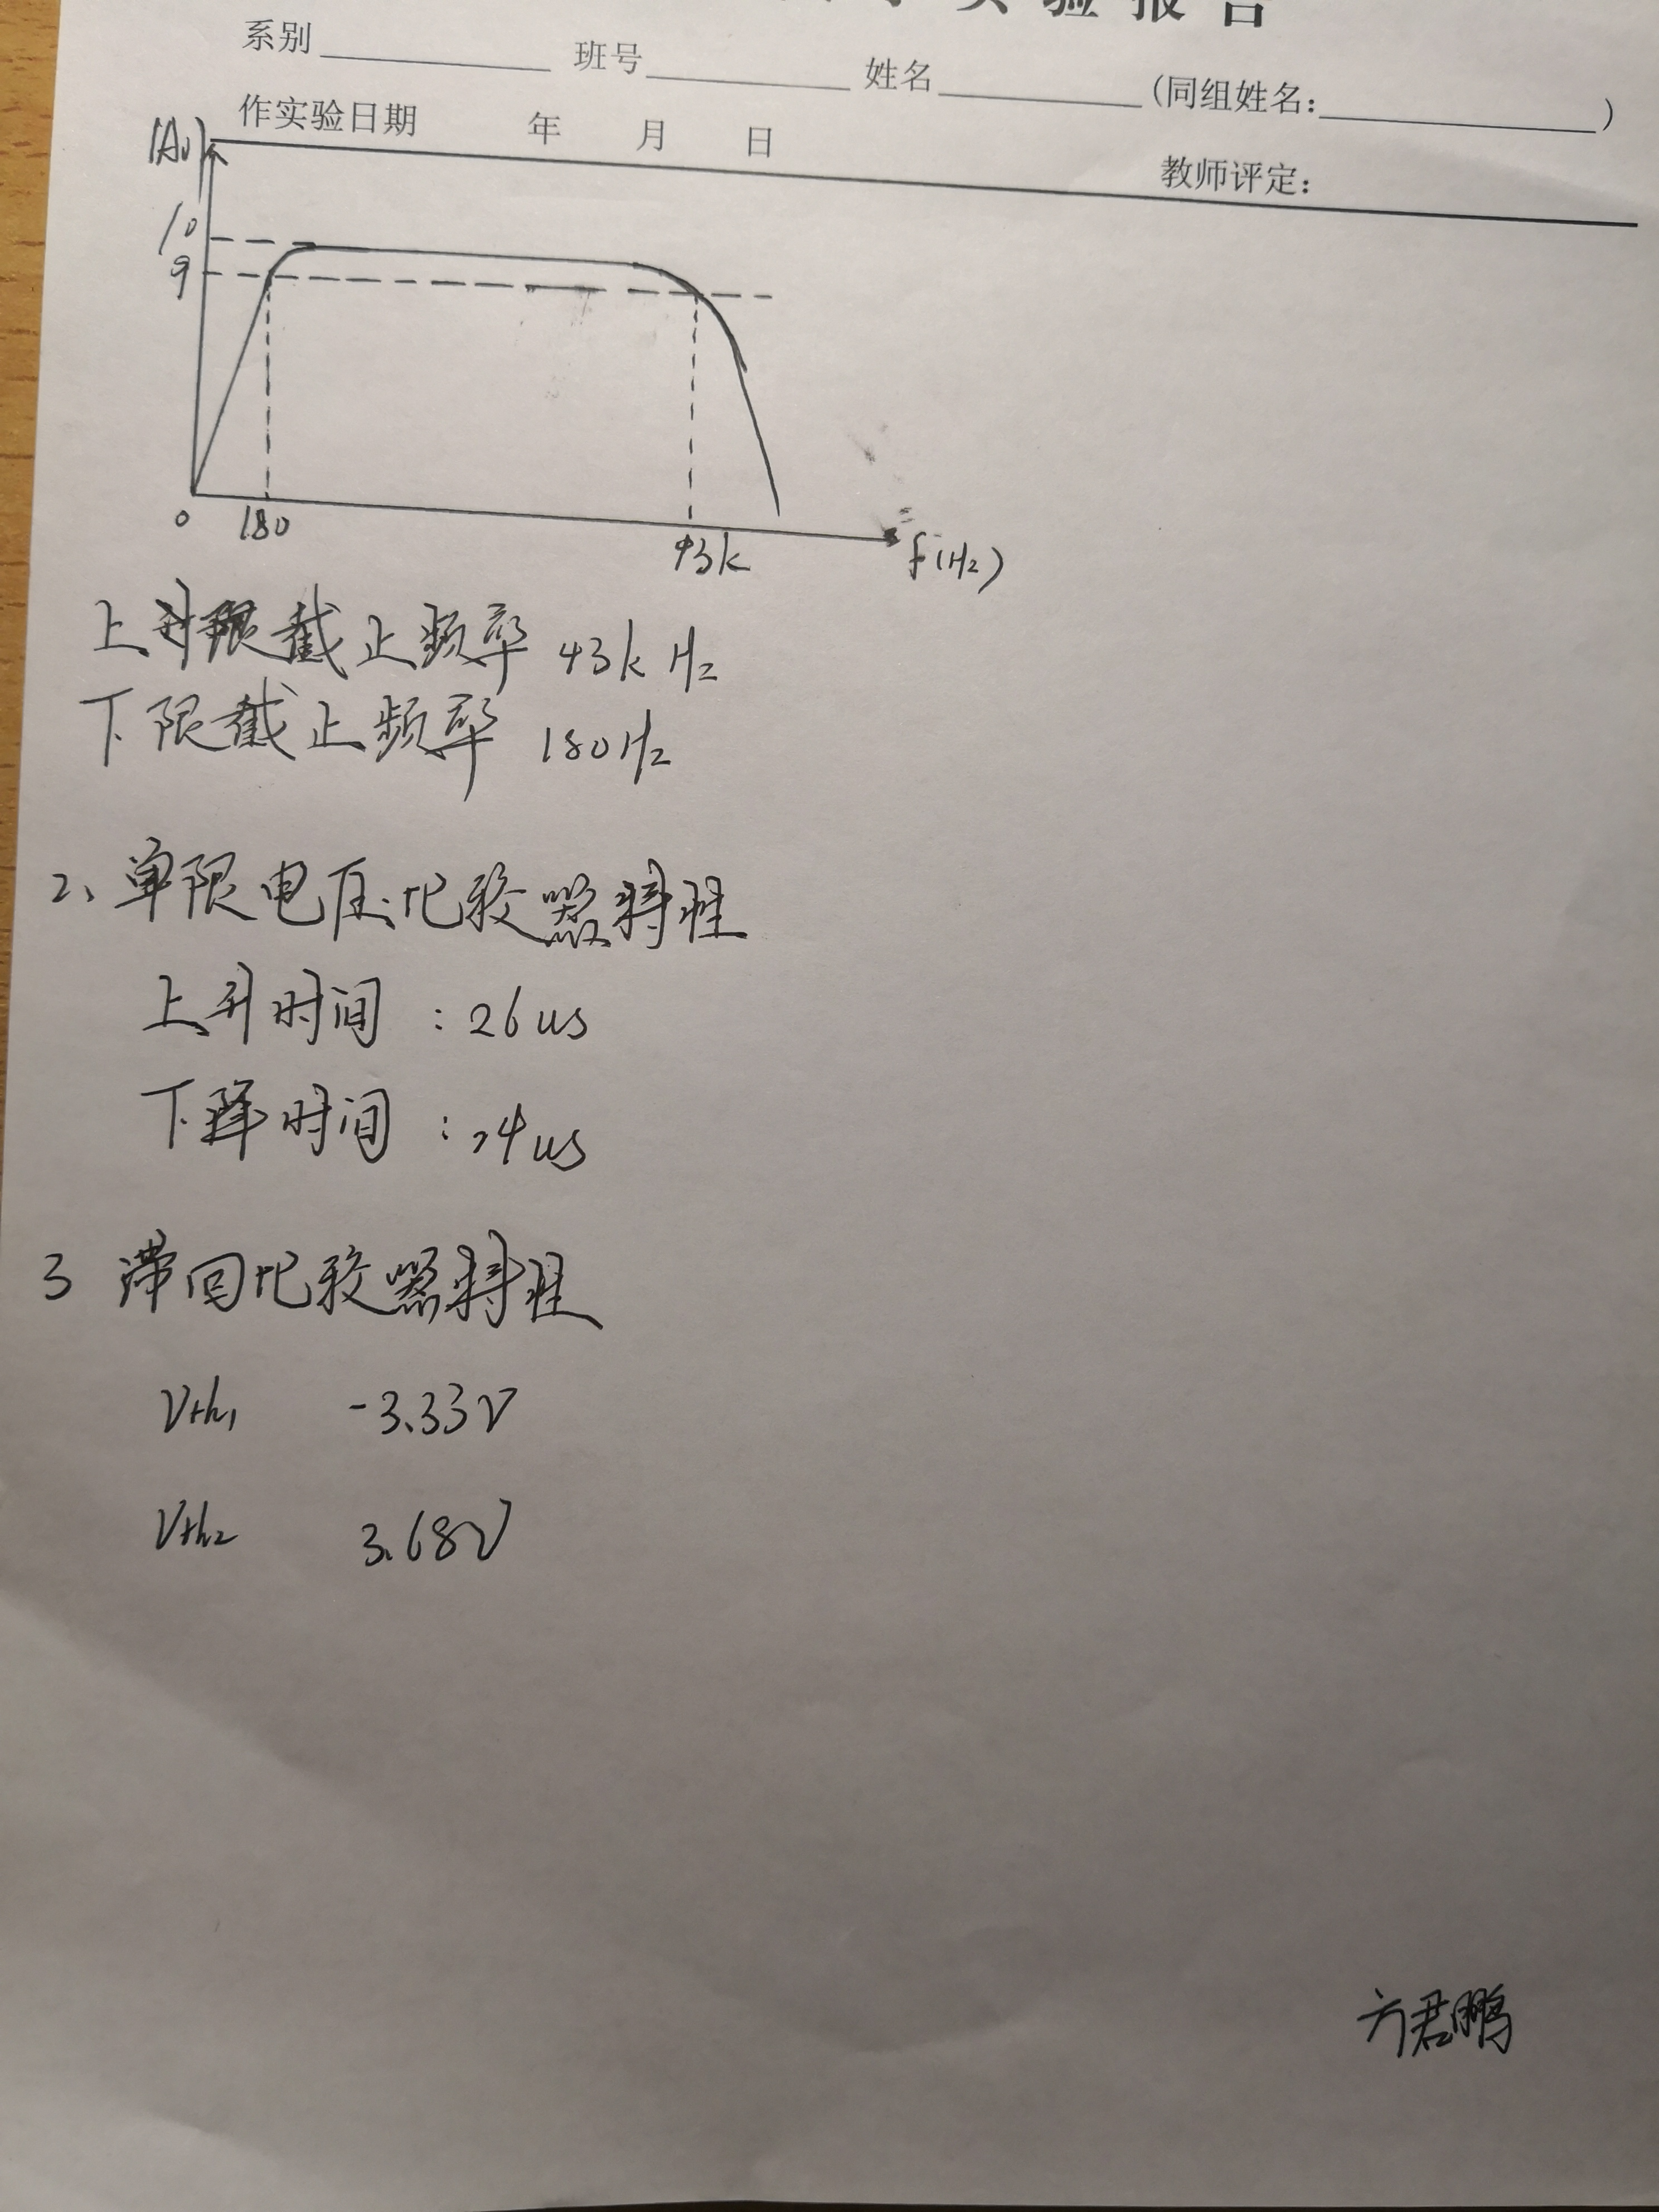 实验报告
系别 班号 姓名 (同组姓名: )
作实验日期 年 月 日
教师评定:
|Av|
10
9
0 180 43k f(Hz)
上限截止频率 43k Hz
下限截止频率 180Hz
2、单限电压比较器特性
上升时间 : 26us
下降时间 : 24us
3 滞回比较器特性
Vth1 -3.33V
Vth2 3.68V
方君鹏